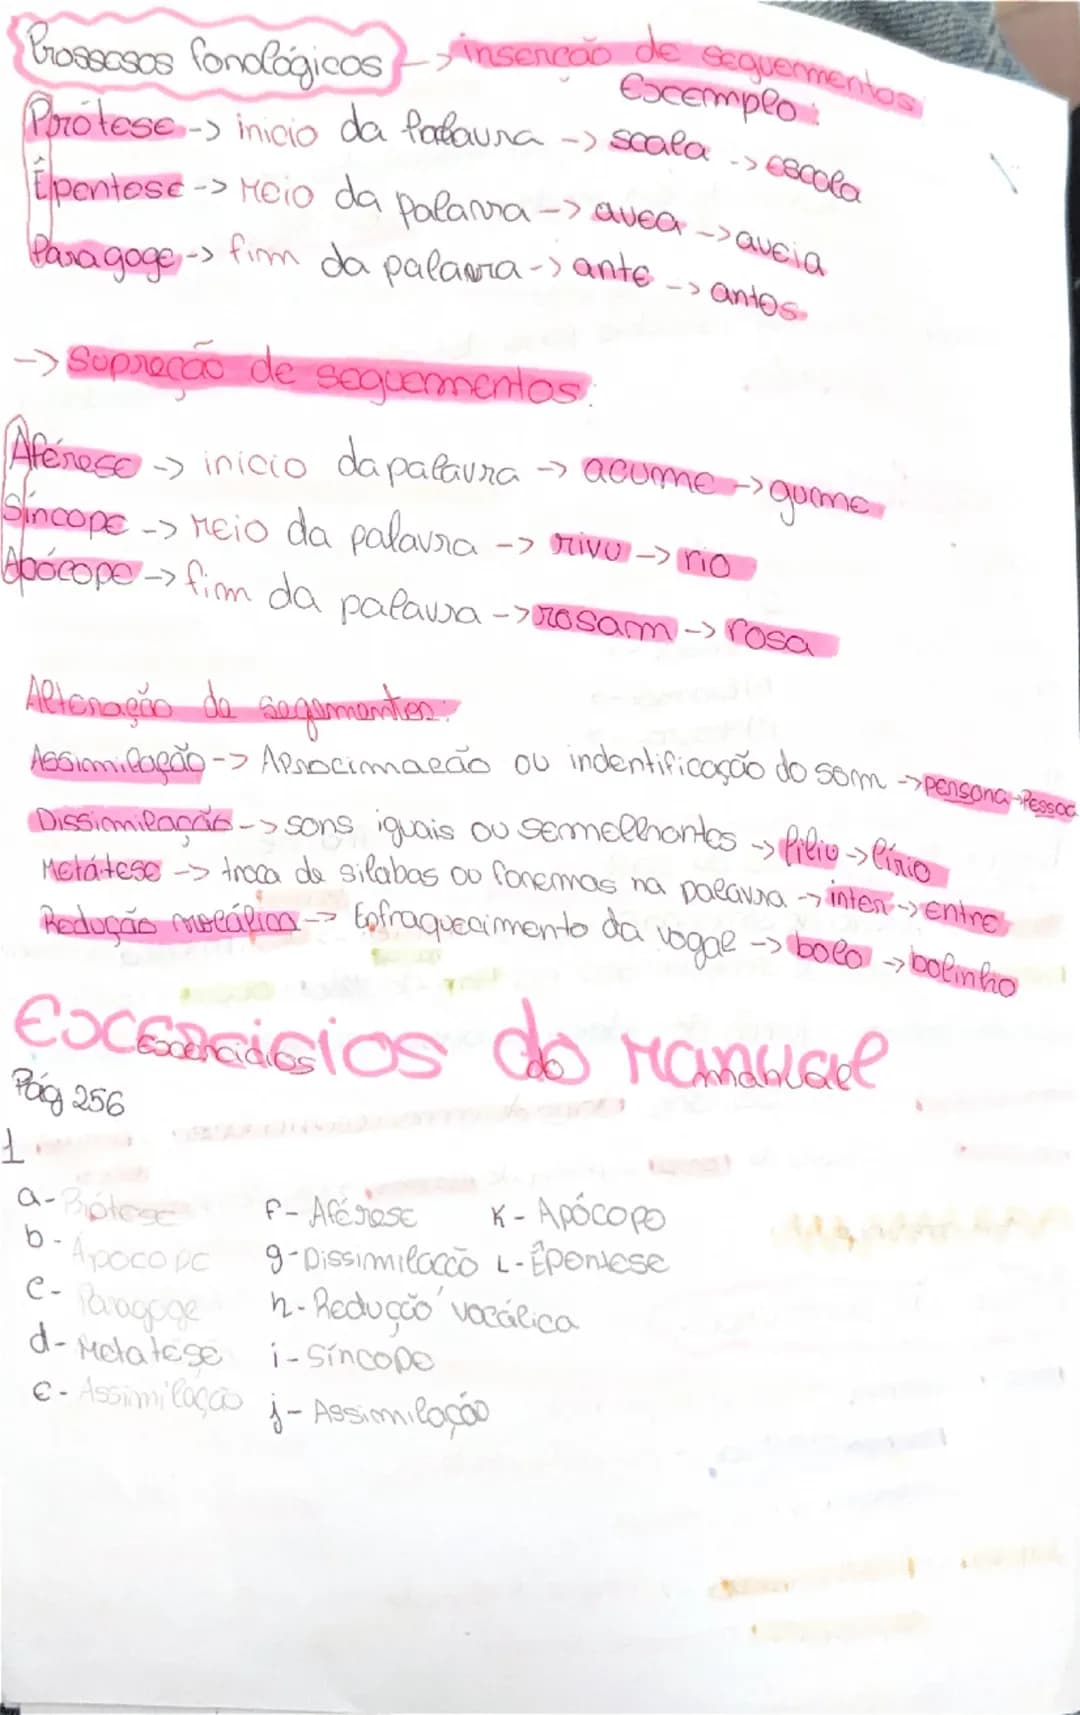 Prossesos fonológicos -> inserção de seguermentos
Excemplo:
Prótese -> inicio da palavra -> scala -> escola
Êpentese -> Meio da palavra -> avea -> aveia
Paragoge -> fim da palavra -> ante -> antes
-> Supreção de seguermentos:
Aférese -> inicio da palavra -> acume -> gume
Síncope -> Meio da palavra -> rivu -> rio
Apócope -> fim da palavra -> rosam -> rosa
Alteração de segamentos:
Assimilação -> Aprocimação ou indentificação do som -> persona -> Pessoa
Dissimilação -> sons iguais ou sermelhantes -> liliu -> lírio
Metátese -> troca de silabas ou fonemas na palavra -> inter -> entre
Redução vocálica -> Enfraquecimento da vogal -> bolo -> bolinho
Excercicios do Manual
Excercicios do manual
Pág 256
1.
a- Prótese
b- Apocope
c- Paragoge
d- Metatése
e- Assimilação
f- Aférese
g- Dissimilação
h- Redução vocálica
i- Síncope
j- Assimilação
K- Apócope
L- Êpentese